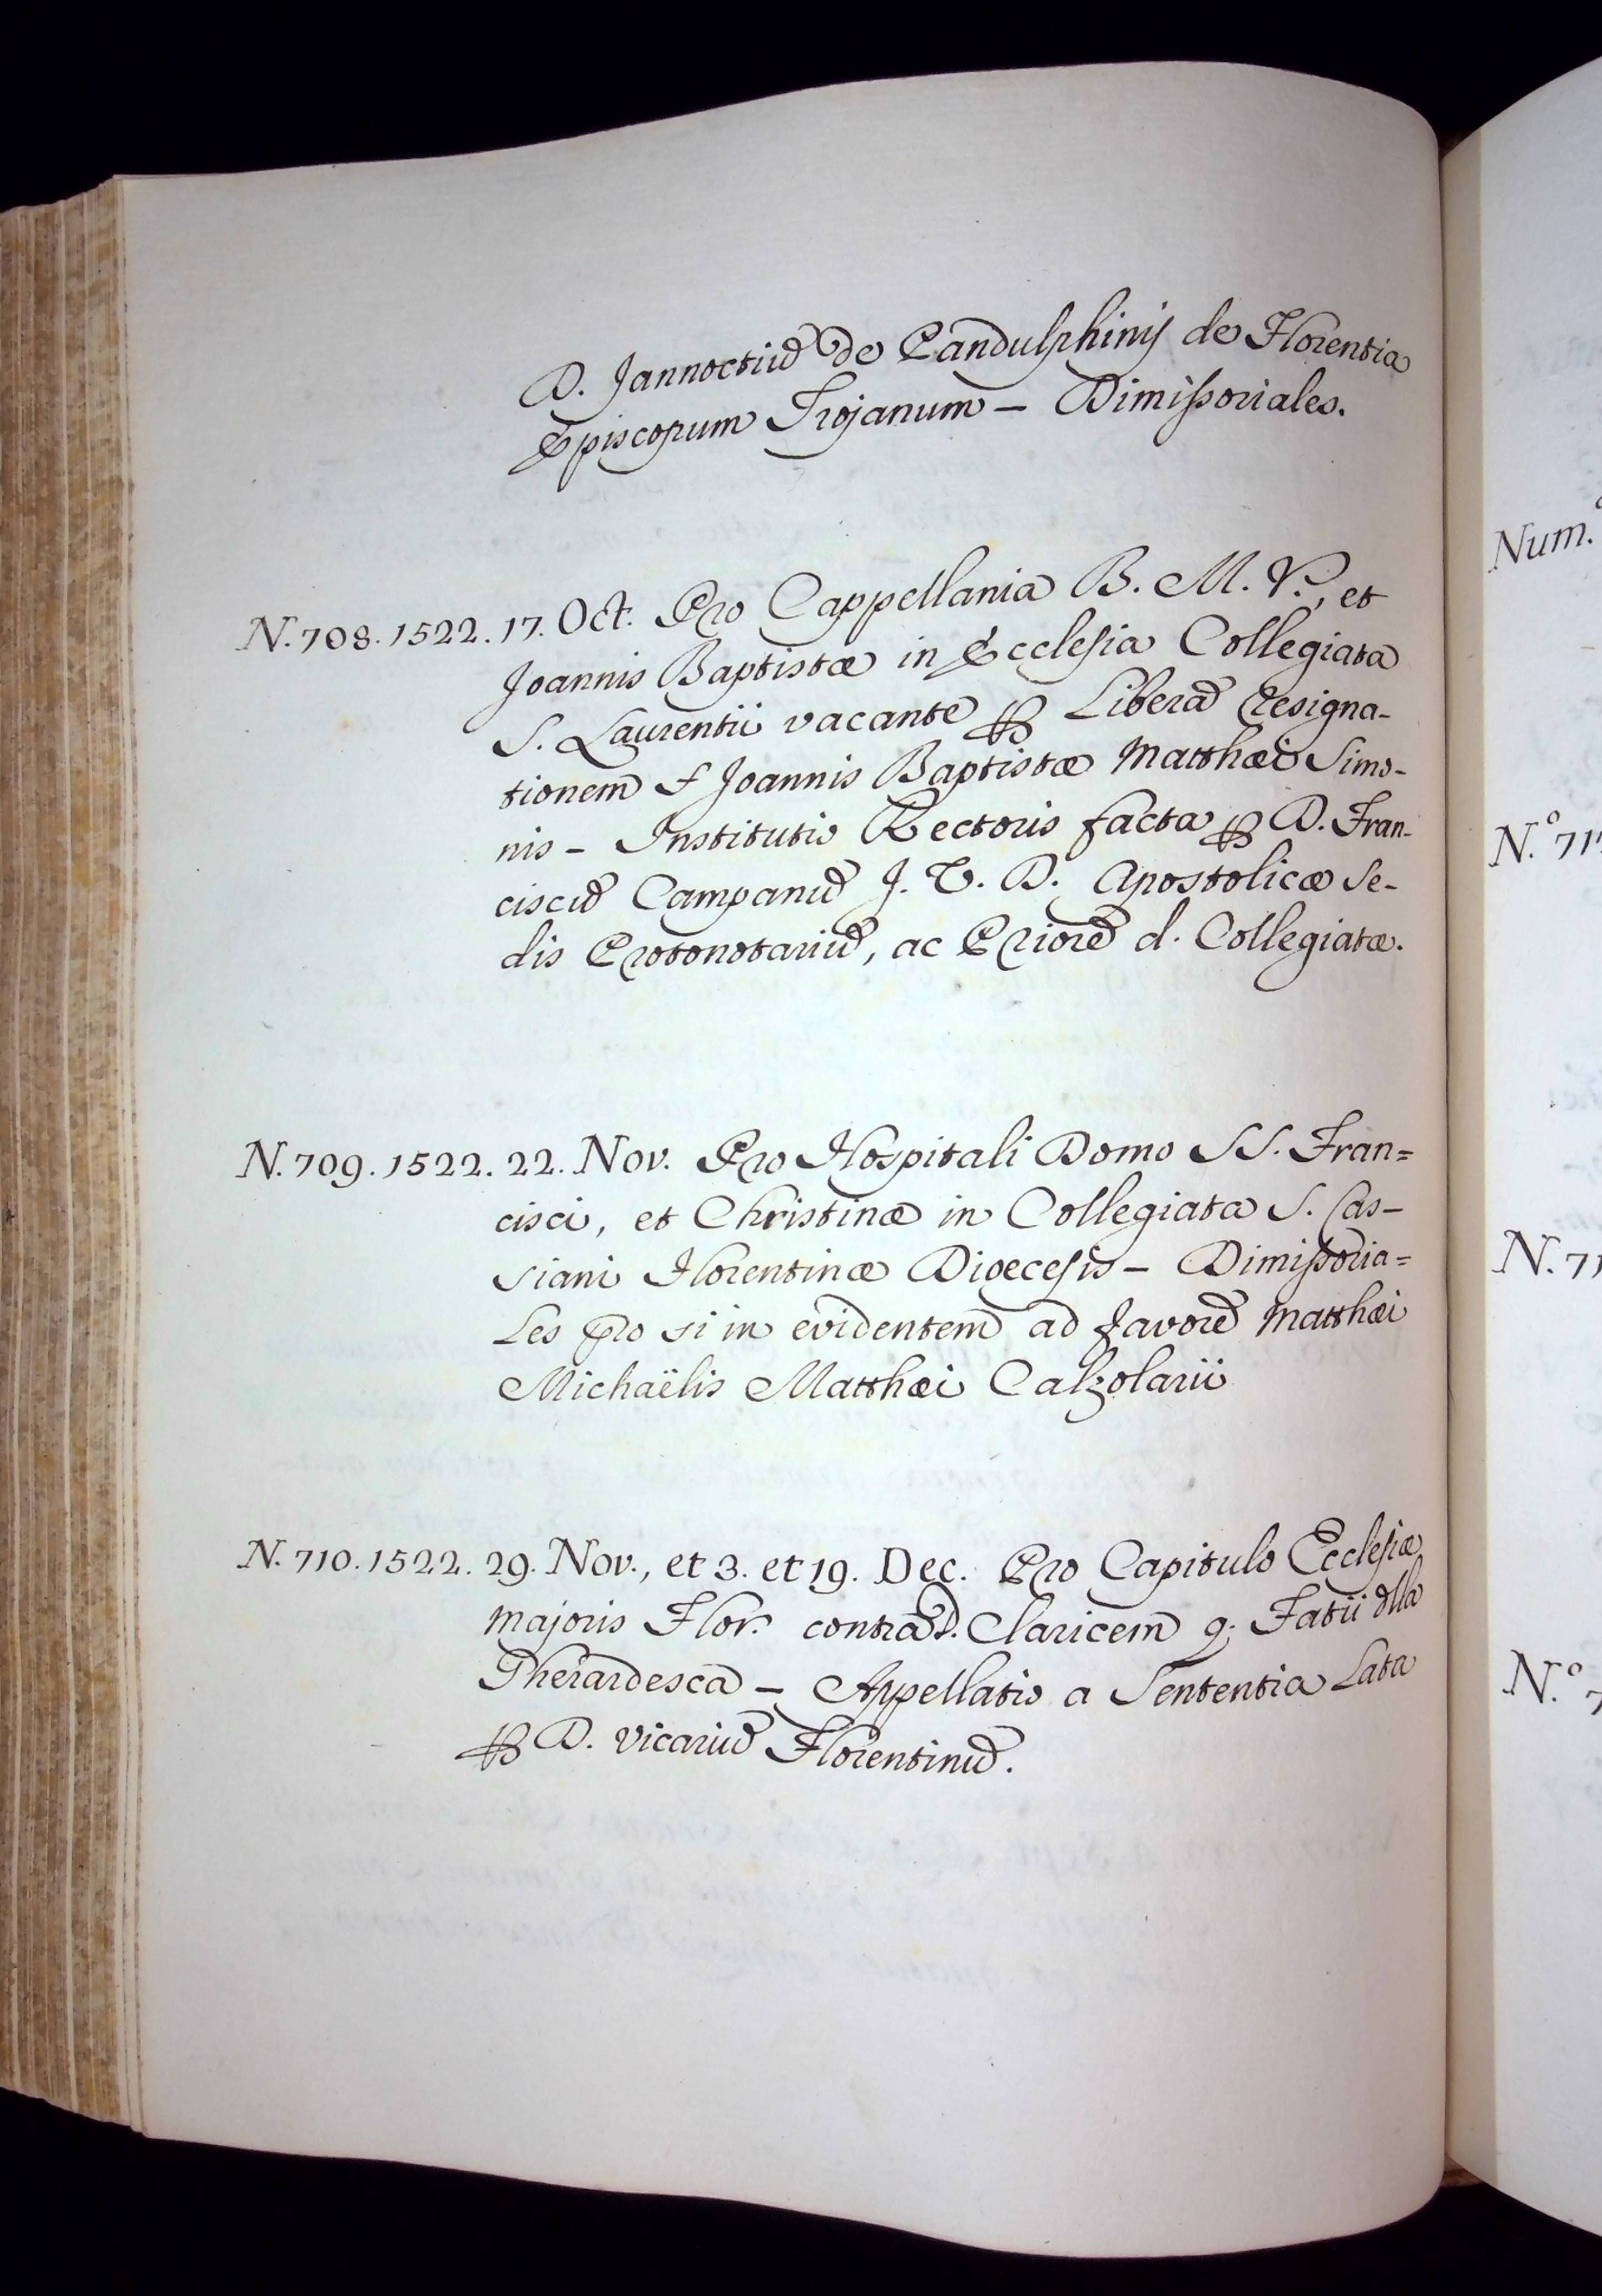 D. Jannoctiũ de Pandulphinijs de Florentia
Episcopum Trojanum – Dimissoriales.
N. 708. 1522. 17. Oct. Pro Cappellania B. M. V., et
Joannis Baptistæ in Ecclesia Collegiata
S. Laurentii vacante ꝑ Liberã Resigna-
tionem f Joannis Baptistæ Matthæi Simo-
nis – Institutio Rectoris facta ꝑ D. Fran-
ciscũ Campanũ J. V. D. Apostolicæ Se-
dis Protonotariũ, ac Priorẽ d. Collegiatæ.
N. 709. 1522. 22. Nov. Pro Hospitali Domo SS. Fran=
cisci, et Christinæ in Collegiata S. Cas-
siani Florentinæ Dioecesis – Dimissoria=
les pro si in evidentem ad favorẽ Matthæi
Michaëlis Matthæi Calzolarii
N. 710. 1522. 29. Nov., et 3. et 19. Dec. Pro Capitulo Ecclesiæ
majoris Flor. contra D. Claricem q. Fatii dlla
Gherardesca – Appellatio a Sententia Lata
ꝑ D. Vicariũ Florentinũ.
Num.
N.º 71
N. 71
N.º 7